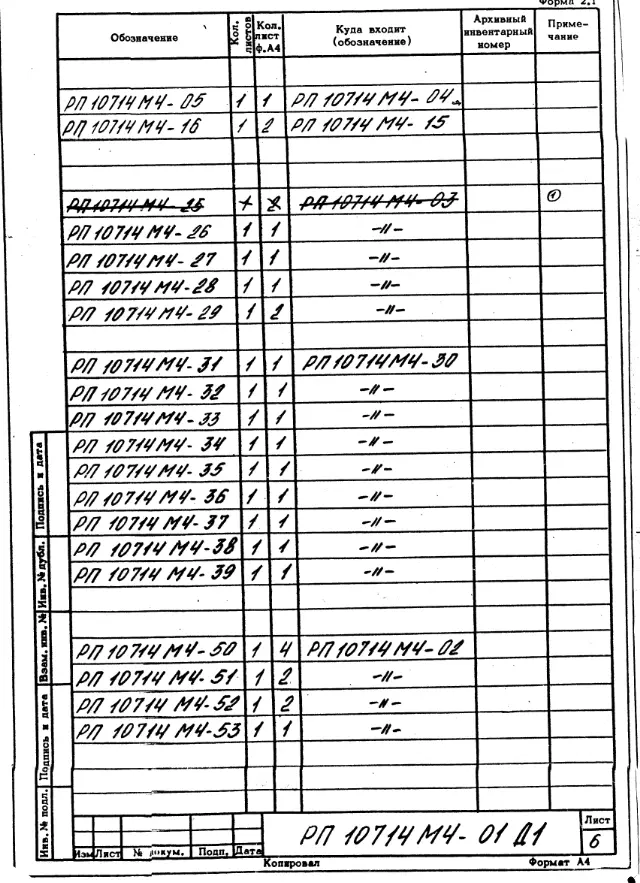 Форма 2.1
Обозначение Кол. листов Кол. лист ф.А4 Куда входит (обозначение) Архивный инвентарный номер Примечание
РП 10714 М4-05 1 1 РП 10714 М4-04
РП 10714 М4-16 1 2 РП 10714 М4-15
РП 10714 М4-25 1 2 РП 10714 М4-03 1
РП 10714 М4-26 1 1 -//-
РП 10714 М4-27 1 1 -//-
РП 10714 М4-28 1 1 -//-
РП 10714 М4-29 1 2 -//-
РП 10714 М4-31 1 1 РП 10714 М4-30
РП 10714 М4-32 1 1 -//-
РП 10714 М4-33 1 1 -//-
РП 10714 М4-34 1 1 -//-
РП 10714 М4-35 1 1 -//-
РП 10714 М4-36 1 1 -//-
РП 10714 М4-37 1 1 -//-
РП 10714 М4-38 1 1 -//-
РП 10714 М4-39 1 1 -//-
РП 10714 М4-50 1 4 РП 10714 М4-02
РП 10714 М4-51 1 2 -//-
РП 10714 М4-52 1 2 -//-
РП 10714 М4-53 1 1 -//-
Подпись и дата
Инв. № дубл.
Взам. инв. №
Подпись и дата
Инв. № подл.
РП 10714 М4-01 Д1
Лист
6
Изм Лист № докум. Подп. Дата
Копировал Формат А4